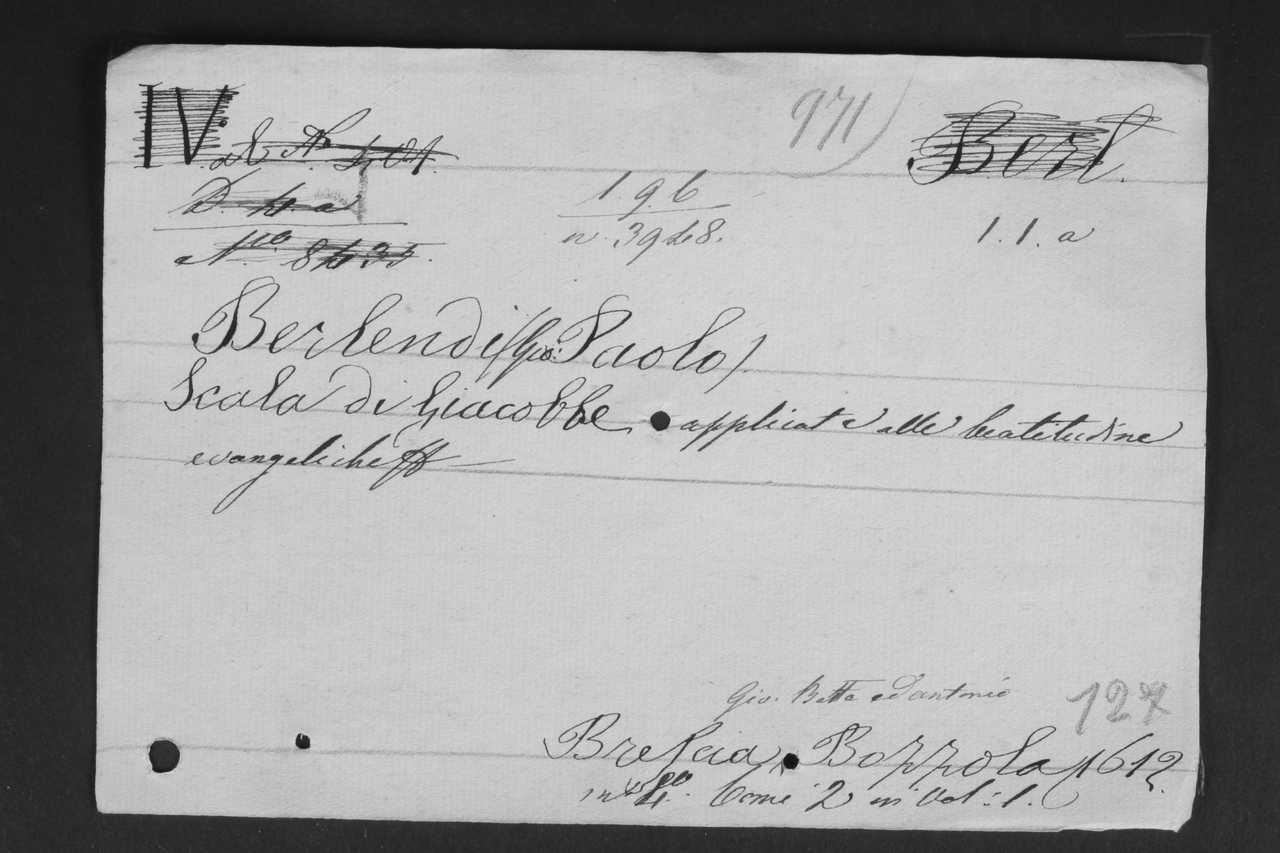 IV.
971
Berl.
D. 4. a
196
N.ro 8435.
n. 3948.
1. 1. a
Berlendi (Gio: Paolo)
Scala di Giacobbe applicata alle beatitudine
evangeliche
Gio. Batta ed Antonio
127
Brescia, Bozzola 1612.
in 4.to Tomi 2 in Vol: 1.